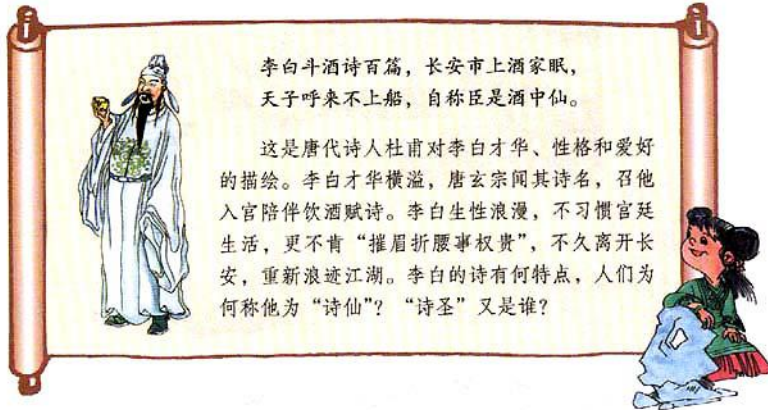 李白斗酒诗百篇，长安市上酒家眠，
天子呼来不上船，自称臣是酒中仙。
这是唐代诗人杜甫对李白才华、性格和爱好
的描绘。李白才华横溢，唐玄宗闻其诗名，召他
入宫陪伴饮酒赋诗。李白生性浪漫，不习惯宫廷
生活，更不肯“摧眉折腰事权贵”，不久离开长
安，重新浪迹江湖。李白的诗有何特点，人们为
何称他为“诗仙”？“诗圣”又是谁？